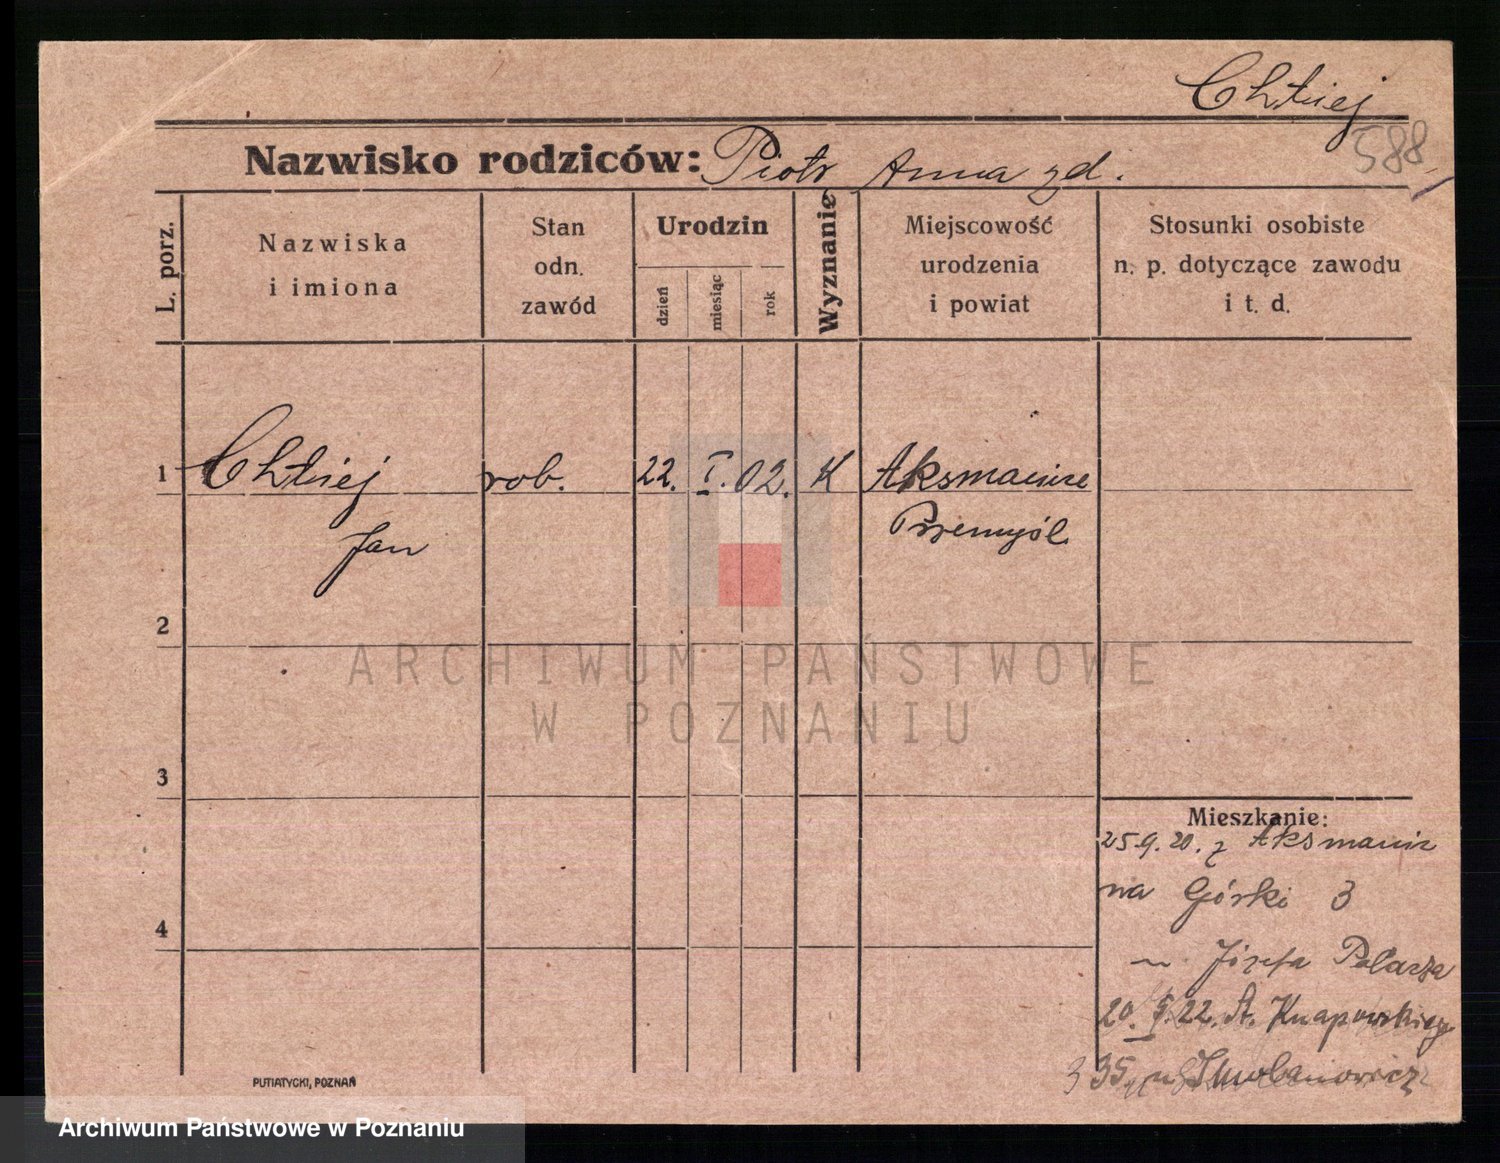 Chłziej
588
Nazwisko rodziców: Piotr Anna zd.
L. porz.
Nazwiska
i imiona
Stan
odn.
zawód
Urodzin
dzień
miesiąc
rok
Wyznanie
Miejscowość
urodzenia
i powiat
Stosunki osobiste
n. p. dotyczące zawodu
i t. d.
1 Chłziej rob. 22. I. 02. K Aksmanice
Jan Przemyśl
2
3
4
Mieszkanie:
25.9.20. z Aksmanic
na Górki 3
Józefa
20. 22. A. Knapowskiego
35
PUTIATYCKI, POZNAŃ
ARCHIWUM PAŃSTWOWE
W POZNANIU
Archiwum Państwowe w Poznaniu